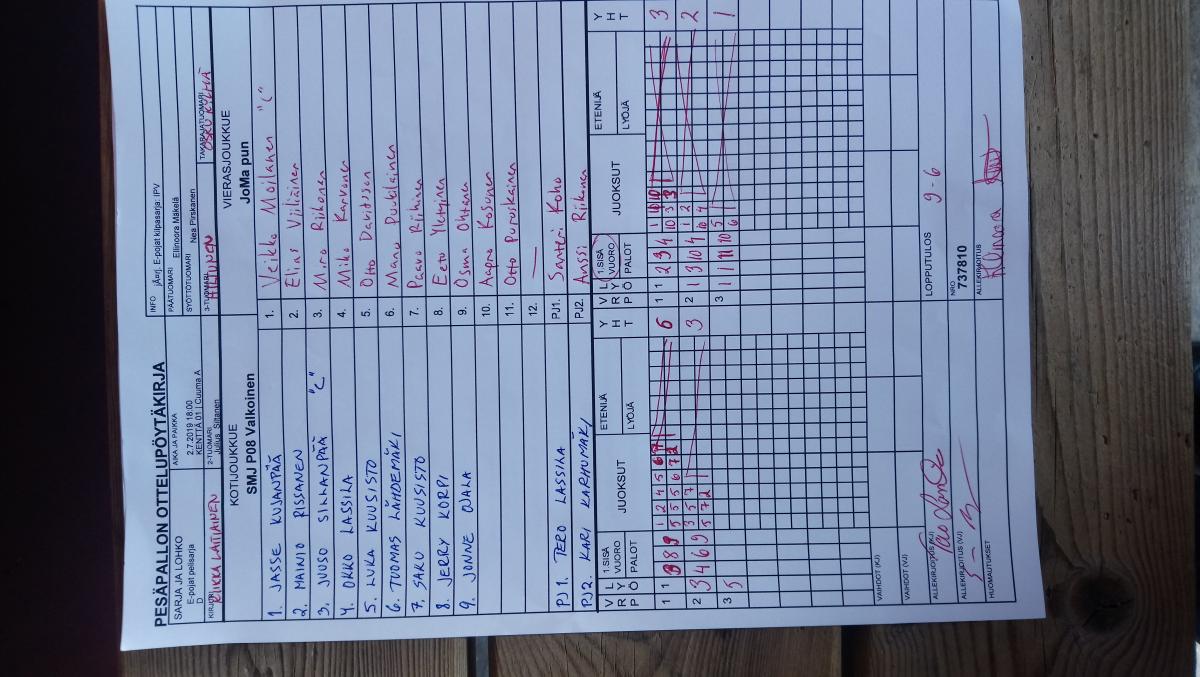 PESÄPALLON OTTELUPÖYTÄKIRJA
SARJA JA LOHKO
E-pojat pelisarja
D
AIKA JA PAIKKA
2.7.2019 18:00
KENTTÄ 01 | Cuuma A
INFO
E-pojat kilpasarja: IPV
PÄÄTUOMARI Ellinoora Mäkelä
SYÖTTÖTUOMARI Nea Pirskanen
KIRJURI
LAITIAINEN
2-TUOMARI
Julius Siltanen
3-TUOMARI
HILTUNEN
TAKARAJATUOMARI
KOTIJOUKKUE
SMJ P08 Valkoinen
VIERASJOUKKUE
JoMa pun
1. JASSE KUJANPÄÄ
2. MAINIO RISSANEN
3. JUUSO SILLANPÄÄ "C"
4. OKKO LASSILA
5. LUKA KUUSISTO
6. TUOMAS LÄHDEMÄKI
7. SAKU KUUSISTO
8. JERRY KORPI
9. JONNE OJALA
PJ1. TERO LASSILA
PJ2. KARI KARHUMÄKI
1. Veikko Moilanen "C"
2. Elias Väiläinen
3. Miro Riikonen
4. Mika Karvonen
5. Otto Davidsson
6. Manu Puukilainen
7. Paavo Riihinen
8. Eeto Yletyinen
9. Osma Ohtonen
10. Aapro Kosunen
11. Otto Puruskainen
12. —
PJ1. Santeri Koho
PJ2. Anssi Riikonen
V R P
L Y Ö
1 SISÄ
VUORO
PALOT
JUOKSUT
ETENIJÄ
LYÖJÄ
Y H T
V R P
L Y Ö
1 SISÄ
VUORO
PALOT
JUOKSUT
ETENIJÄ
LYÖJÄ
Y H T
1 1 3 8 9 1 2 4 5 6 7 6
5 5 5 6 7 2
2 3 4 6 9 3 5 7 3
5 7 2
3 5
1 1 2 3 4 1 10 10 3
10 3 3
2 1 3 10 4 1 2 2
10 4
3 1 1 11 10 5 1
6
VAIHDOT (KJ)
VAIHDOT (VJ)
ALLEKIRJOITUS (KJ)
ALLEKIRJOITUS (VJ)
HUOMAUTUKSET
LOPPUTULOS 9-6
NRO
737810
ALLEKIRJOITUS